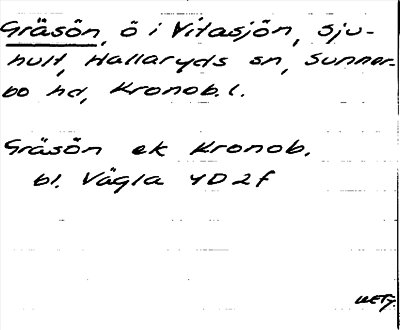 Gräsön, ö i Vitasjön, Sju-
hult, Hallaryds sn, Sunner-
bo hd, Kronob. l.
Gräsön ek Kronob.
bl. Vägla 4D2f